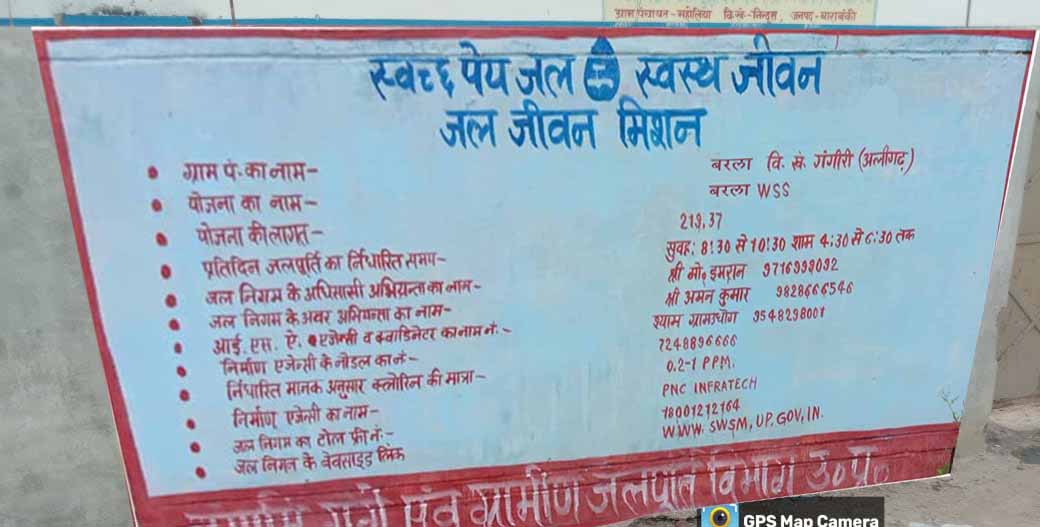 ग्राम पंचायत - महोलिया वि.खे.-निन्दूरा, जनपद-बाराबंकी
स्वच्छ पेय जल स्वस्थ जीवन
जल जीवन मिशन
• ग्राम पं. का नाम- बरला वि. खे. गंगीरी (अलीगढ़)
• योजना का नाम- बरला WSS
• योजना की लागत- 219,37
• प्रतिदिन जलपूर्ति का निर्धारित समय- सुवह: 8:30 से 10:30 शाम 4:30 से 6:30 तक
• जल निगम के अधिसासी अभियन्ता का नाम- श्री मो. इमरान 9716998092
• जल निगम के अवर अभियन्ता का नाम- श्री अमन कुमार 9828666546
• आई. एस. ऐ. एजेन्सी व क्वाडिनेटर का नाम नं.- श्याम ग्रामउधोग 9548298001
• निर्माण एजेन्सी के नोडल का नं- 7248896666
• निर्धारित मानक अनुसार क्लोरिन की मात्रा- 0.2-1 PPM.
• निर्माण एजेन्सी का नाम- PNC INFRATECH
• जल निगम का टोल फ्री नं- 18001212164
• जल निगम के बेवसाइड लिंक WWW. SWSM, UP. GOV, IN.
एंव ग्रामीण जलपूर्ति विभाग उ०प्र०
GPS Map Camera